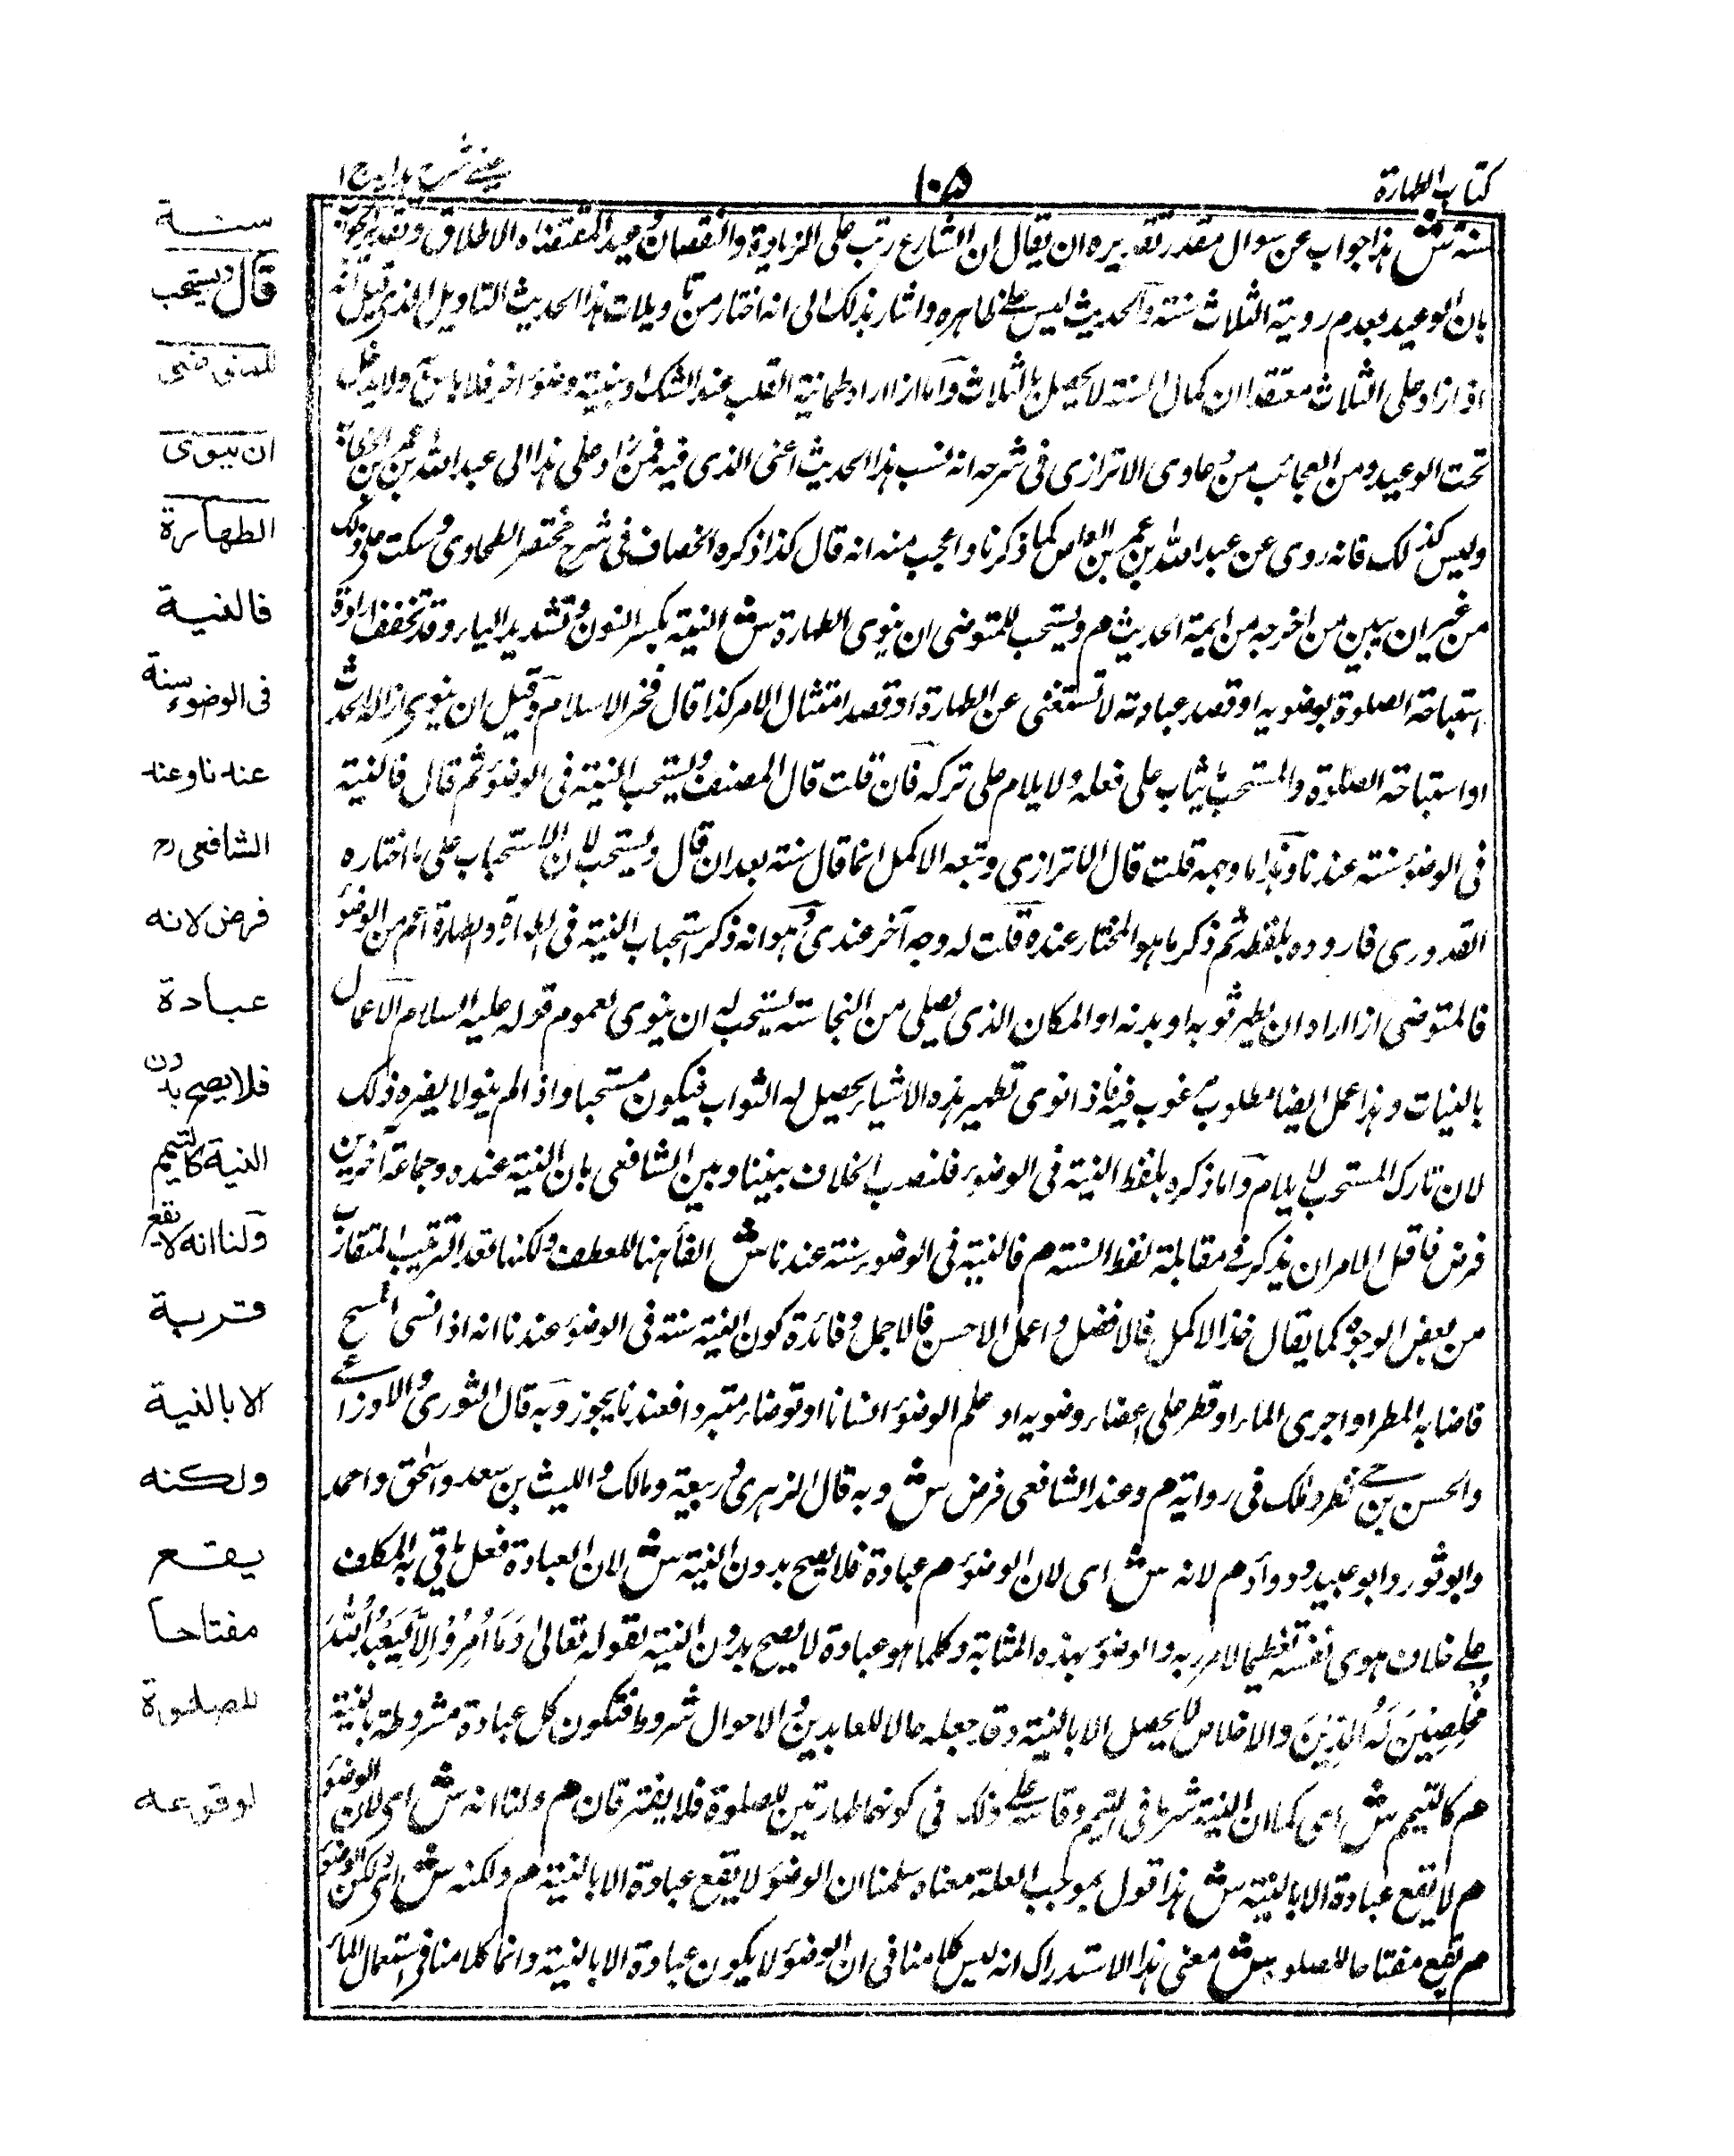 كتاب الطهارة
١٠٥
عينى شرح هدايه ج ١
سنة ش هذا جواب عن سوال مقدر تقديره ان يقال ان الشارع رتب على الزيادة والنقصان وعيدا فمقتضاه الاطلاق وتقدير الجواب
بان الوعيد بعدم روية الثلاث سنة والحديث ليس على ظاهره واشار بذلك الى انه اختار من تاويلات هذا الحديث التاويل الذى قيل انه
اذا زاد على الثلاث معتقدا ان كمال السنة لا يحصل بالثلاث واما اذا اراد طمانية القلب عند الشك او بنية وضوء اخر فلا باس به ولا يدخل
تحت الوعيد ومن العجائب من دعاوى الاترازى فى شرحه انه نسب هذا الحديث اعنى الذى فيه فمن زاد على هذا الى عبد الله بن عمر بن الخطاب
وليس كذلك فانه روى عن عبد الله بن عمرو بن العاص كما ذكرنا واعجب منه انه قال كذا ذكره الخصاف فى شرح مختصر الطحاوى وسكت على ذلك
من غير ان يبين من اخرجه من ايمة الحديث م ويستحب للمتوضى ان ينوى الطهارة ش النية بكسر النون وتشديد الياء وقد تخفف ارادة
استباحة الصلوة بوضويه او قصد عبادته لا تستغنى عن الطهارة او قصد امتثال الامر كذا قال فخر الاسلام وقيل ان ينوى ازالة الحدث
او استباحة الصلوة والمستحب ما يثاب على فعله ولا يلام على تركه فان قلت قال المصنف ويستحب النية فى الوضوء ثم قال فالنية
فى الوضوء سنة عندنا وهذا ما وجهه قلت قال الاترازى وتبعه الاكمل انما قال سنة بعد ان قال ويستحب لان الاستحباب على ما اختاره
القدورى فاورده بلفظه ثم ذكر ما هو المختار عنده قلت له وجه آخر عندى وهو انه ذكر استحباب النية فى الطهارة والطهارة اعم من الوضوء
فالمتوضى اذا اراد ان يطهر ثوبه او بدنه او المكان الذى يصلى من النجاسة يستحب له ان ينوى لعموم قوله عليه السلام الاعمال
بالنيات وهذا عمل ايضا مطلوب مرغوب فيه فاذا نوى تطهير هذه الاشياء يحصل له الثواب فيكون مستحبا واذا لم ينو لا يضره ذلك
لان تارك المستحب لا يلام واما ذكره بلفظ النية فى الوضوء فلنصب الخلاف بيننا وبين الشافعى بان النية عنده وجماعة آخرين
فرض فاقل الامر ان يذكر فى مقابلة لفظ السنة م فالنية فى الوضوء سنة عندنا ش الفاء ههنا للعطف ولكنها تفيد الترتيب المتقارب
من بعض الوجوه كما يقال خذ الاكمل فالافضل واعمل الاحسن فالاجمل وفائدة كون النية سنة فى الوضوء عندنا انه اذا نسى المسح
فاصابه المطر او اجرى الماء او قطر على اعضاء وضويه او علم الوضوء انسانا او توضا متبردا فعندنا يجوز وبه قال الثورى والاوزاعى
والحسن بن حى وزفر ومالك فى رواية م وعند الشافعى فرض ش وبه قال الزهرى وربيعة ومالك والليث بن سعد واسحق واحمد
وابو ثور وابو عبيد وداود م لانه ش اى لان الوضوء م عبادة فلا يصح بدون النية ش لان العبادة فعل ياتى به المكلف
على خلاف هوى نفسه تعظيما لامر ربه والوضوء بهذه المثابة وكلما هو عبادة لا يصح بدون النية لقوله تعالى وَمَا اُمِرُوْا اِلَّا لِيَعْبُدُوا اللّٰهَ
مُخْلِصِيْنَ لَهُ الدِّيْنَ والاخلاص لا يحصل الا بالنية وقد جعله حالا للعابدين والاحوال شروط فتكون كل عبادة مشروطة بالنية
م كالتيمم ش اى كما ان النية شرط فى التيمم وقاسه على ذلك فى كونهما طهارتين للصلوة فلا يفترقان م ولنا انه ش اى لان الوضوء
م لا يقع عبادة الا بالنية ش هذا قول بموجب العلة معناه سلمنا ان الوضوء لا يقع عبادة الا بالنية م ولكنه ش اى ولكن الوضوء
م يقع مفتاحا للصلوة ش معنى هذا الاستدراك انه ليس كلامنا فى ان الوضوء لا يكون عبادة الا بالنية وانما كلامنا فى استعمال الماء
سنة
قال ويستحب
للمتوضى
ان ينوى
الطهارة
فالنية
فى الوضوء سنة
عندنا وعند
الشافعى رح
فرض لانه
عبادة
فلا يصح بدون
النية كالتيمم
ولنا انه لا يقع
قربة
الا بالنية
ولكنه
يقع
مفتاحا
للصلوة
لوقوعه